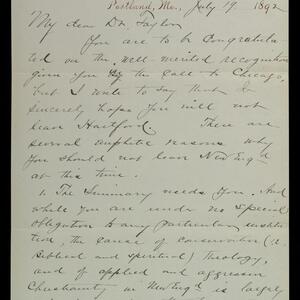 Portland, Me., July 19. 1892
My dear Dr. Taylor
You are to be congratula
ted on the well-merited recognition
given you by the call to Chicago,
but I write to say that I
sincerely hope you will not
leave Hartford. There are
several emphatic reasons why
you should not leave New Engd
at this time.
1. The Seminary needs you. And
while you are under no special
obligation to any particular institu
tion, the cause of conservative (i.e.
Biblical and spiritual) theology,
and of applied and aggressive
Christianity in New Engd is largely